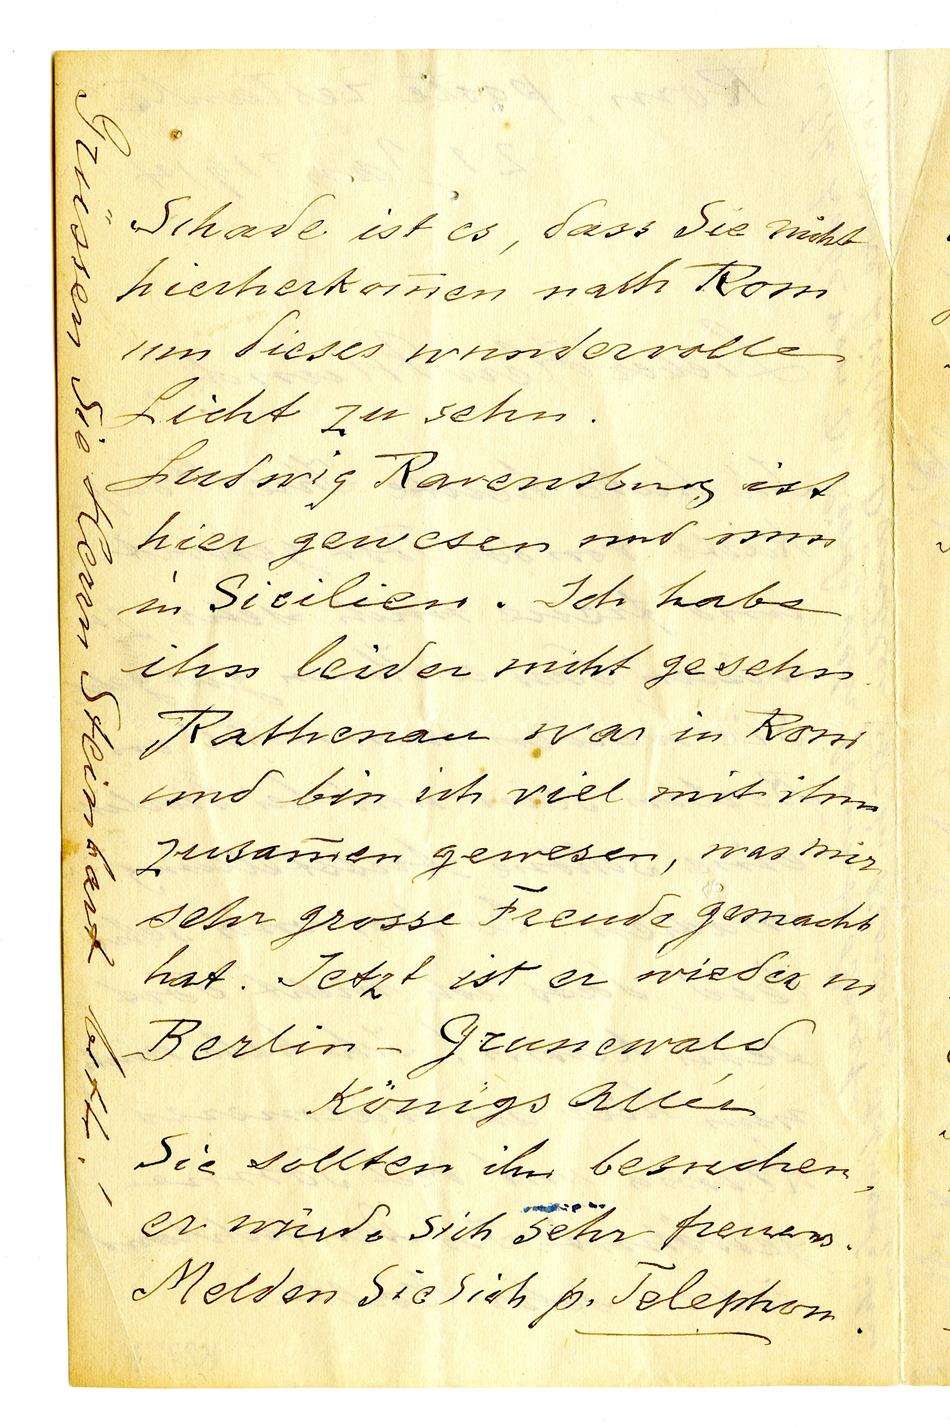 Schade ist es, dass Sie nicht
hierherkom̅en nach Rom
um dieses wundervolle
Licht zu sehn.
Ludwig Ravensburg ist
hier gewesen und nun
in Sicilien. Ich habe
ihn leider nicht gesehn.
Rathenau war in Rom
und bin ich viel mit ihm
zusam̅en gewesen, was mir
sehr grosse Freude gemacht
hat. Jetzt ist er wieder in
Berlin - Grunewald
Königs Allée
Sie sollten ihn besuchen,
er würde sich sehr freuen.
Melden Sie sich p. Telephon.
Grüssen Sie Herrn Steinbart bitte!